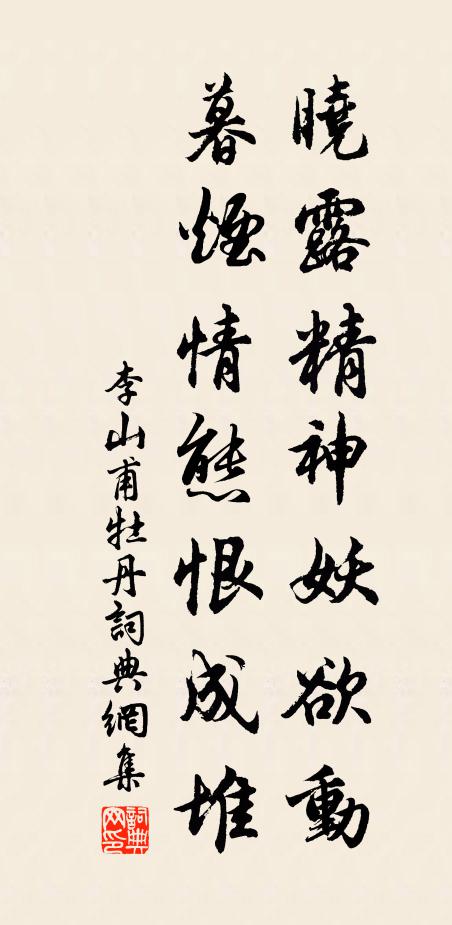 曉露精神妖欲動
暮煙情態恨成堆
李山甫牡丹詞典網集
詞典網印